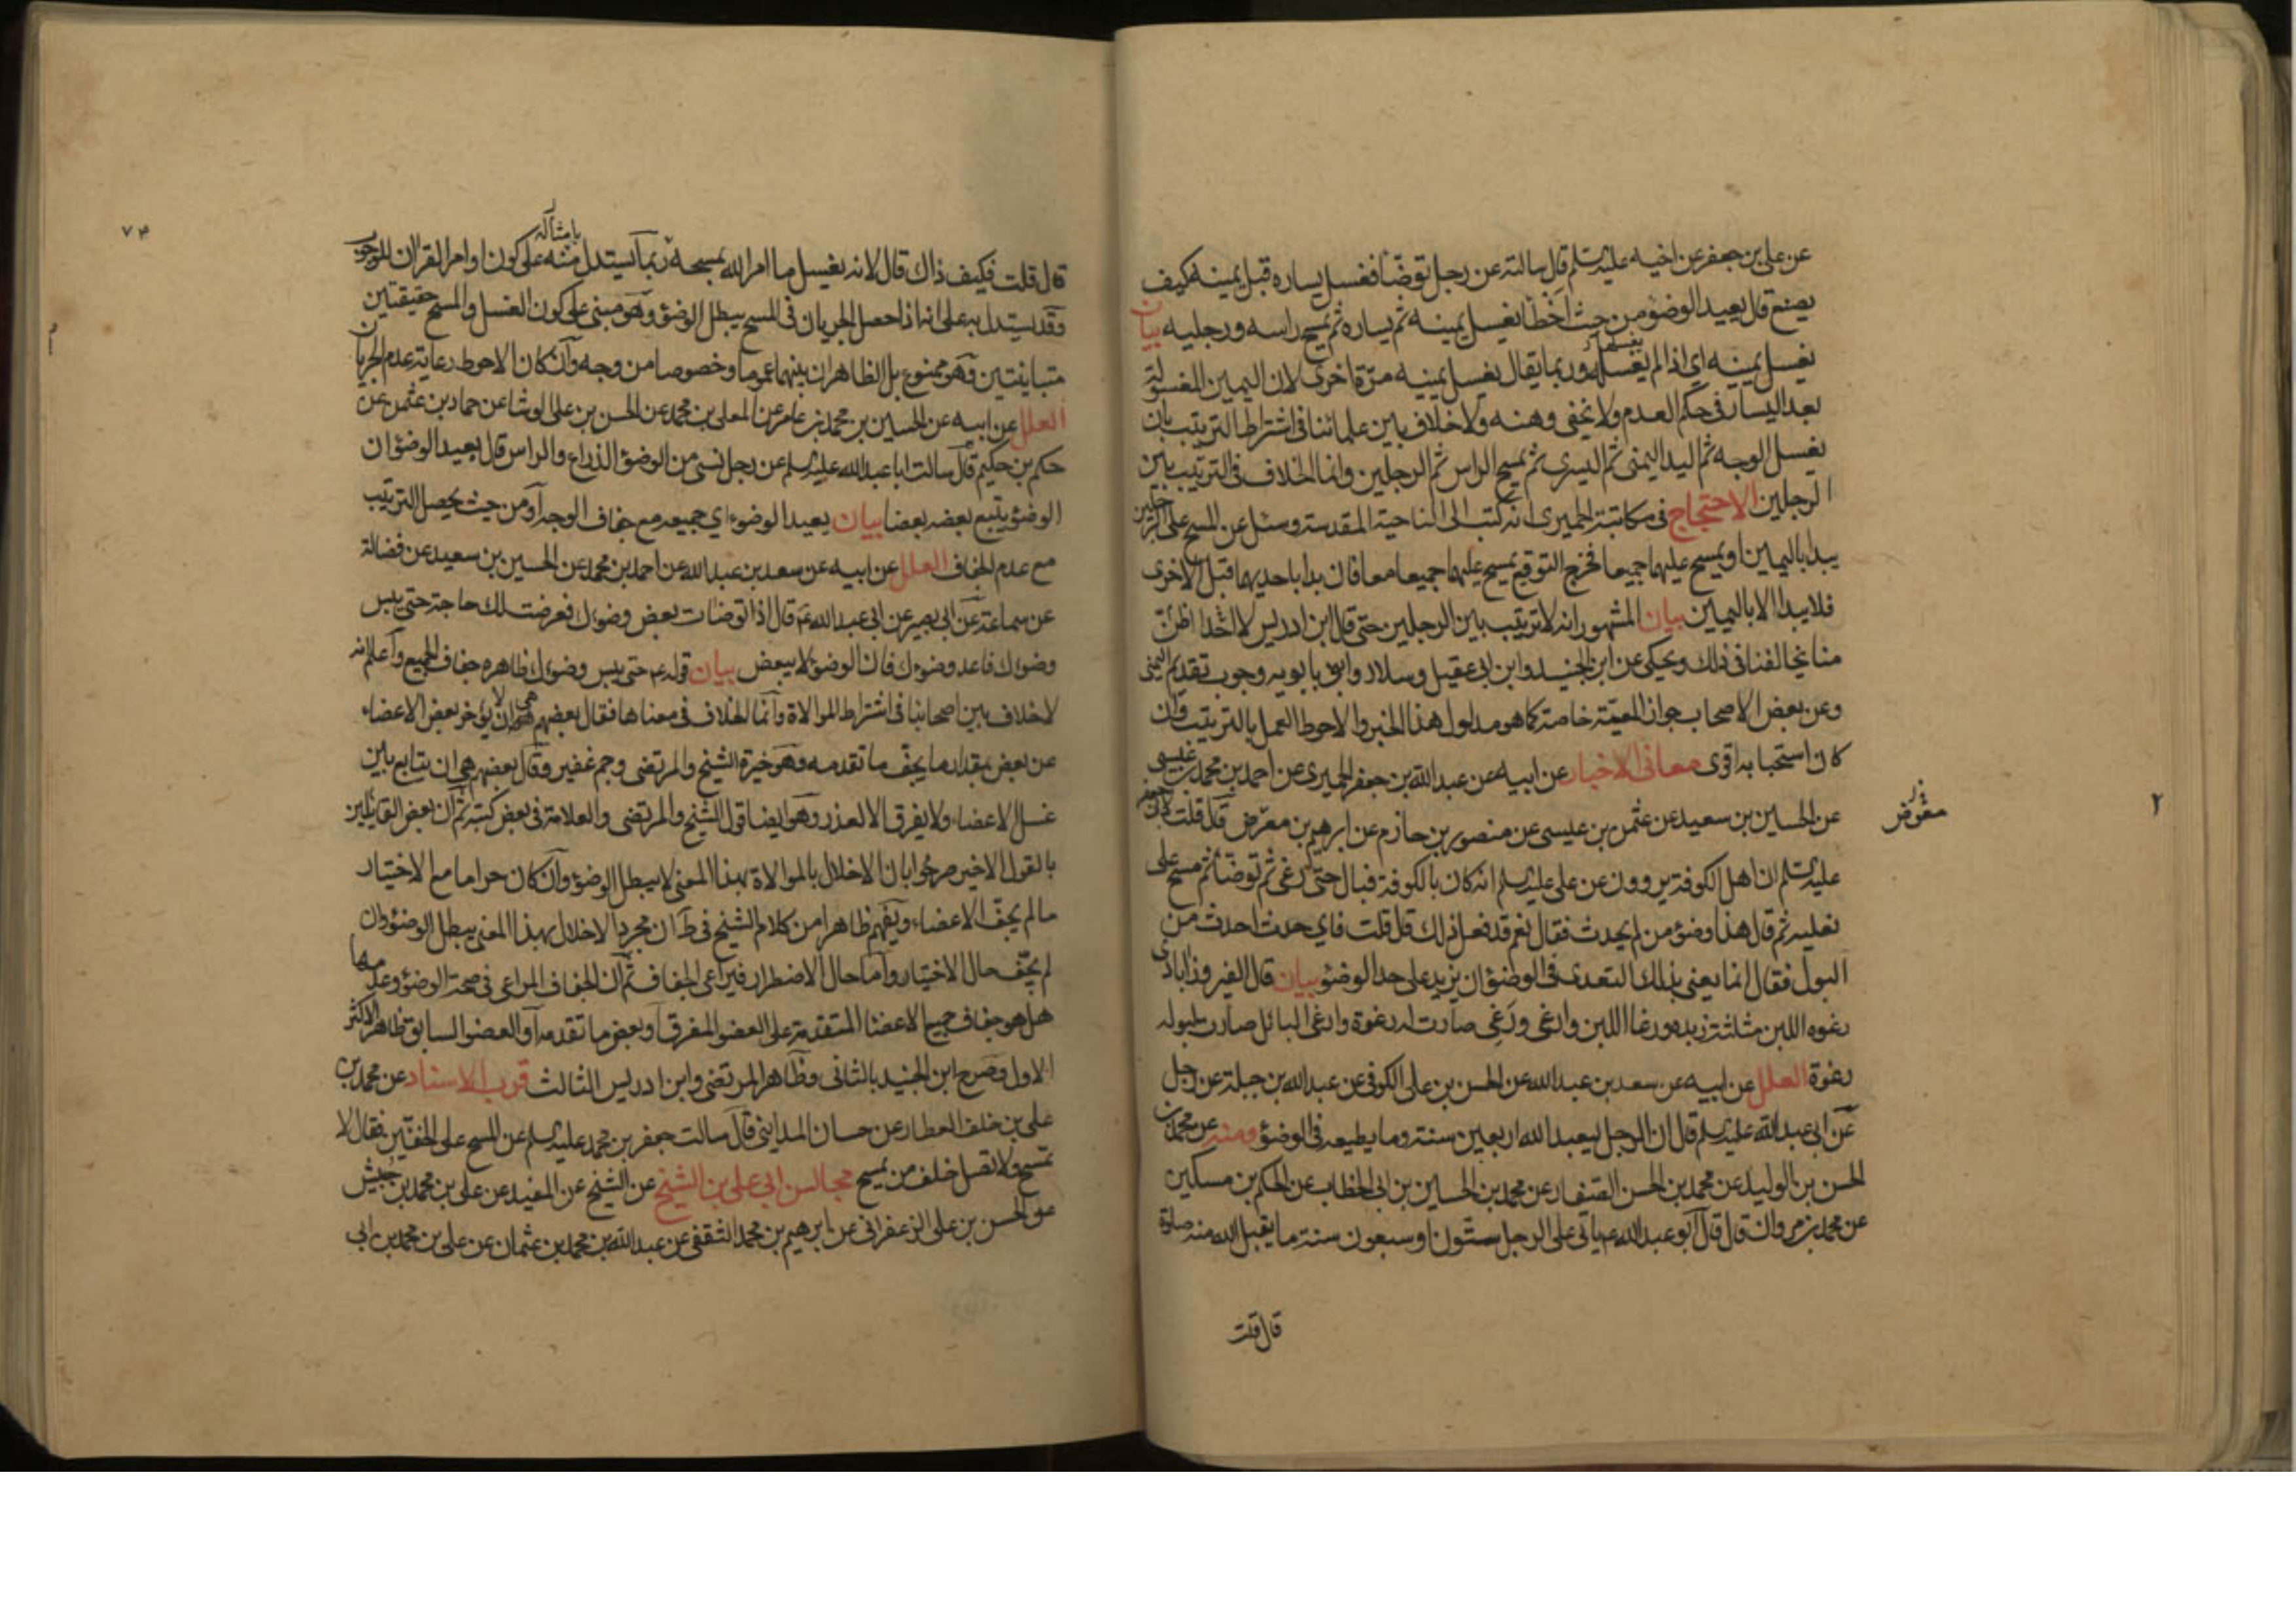 عن علي بن جعفر عن اخيه عليه السلم قال سالته عن رجل توضّأ فغسل يساره قبل يمينه كيف
يصنع قال يعيد الوضوء من حيث اخطأ يغسل يمينه ثم يساره ثم يمسح راسه ورجليه بيان
يغسل يمينه اي اذا لم يغسلها وربما يقال يغسل يمينه مرّة اخرى لان اليمين المغسولة
بعد اليسار في حكم العدم ولا يخفى وهنه ولا خلاف بين علمائنا في اشتراط الترتيب بان
يغسل الوجه ثم اليد اليمنى ثم اليسرى ثم يمسح الراس ثم الرجلين وانما الخلاف في الترتيب بين
الرجلين الاحتجاج في مكاتبة الحميري انه كتب الى الناحية المقدسة وسئل عن المسح على الرجلين
يبدا باليمين او يمسح عليهما جميعا فخرج التوقيع يمسح عليهما جميعا معا فان بدا باحديهما قبل الاخرى
فلا يبدا الا باليمين بيان المشهور انه لا ترتيب بين الرجلين حتى قال ابن ادريس لا احدا اظنّ
منا يخالفنا في ذلك ويحكى عن ابن الجنيد وابن ابي عقيل وسلار وابني بابويه وجوب تقديم اليمنى
وعن بعض الاصحاب جواز المعيّة خاصة كما هو مدلول هذا الخبر والاحوط العمل بالترتيب وان
كان استحبابه اقوى معاني الاخبار عن ابيه عن عبد الله بن جعفر الحميري عن احمد بن محمد بن عيسى
عن الحسين بن سعيد عن عثمن بن عيسى عن منصور بن حازم عن ابرهيم بن معرّض قال قلت لابي جعفر
معرض
عليه السلم ان اهل الكوفة يروون عن علي عليه السلم انه كان بالكوفة فبال حتى رغى ثم توضّأ ثم مسح على
نعليه ثم قال هذا وضوء من لم يحدث فقال نعم قد فعل ذلك قال قلت فاي حدث احدث من
البول فقال انما يعني بذلك التعدي في الوضوء ان يزيد على حد الوضوء بيان قال الفيروزابادي
رغوه اللبن مثلثة زبده ورغا اللبن وارغى ورَغى صارت له رغوة وارغى البائل صارت لبوله
رغوة العلل عن ابيه عن سعد بن عبد الله عن الحسن بن علي الكوفي عن عبد الله بن جبلة عن رجل
عن ابي عبد الله عليه السلم قال ان الرجل ليعبد الله اربعين سنة وما يطيعه في الوضوء ومنه عن محمد بن
الحسن بن الوليد عن محمد بن الحسن الصفار عن محمد بن الحسين بن ابي الخطاب عن الحكم بن مسكين
عن محمد بن مروان قال قال ابو عبد الله ع ياتي على الرجل ستون او سبعون سنة ما يقبل الله منه صلوة
قال قلت
٧٣
قال قلت فكيف ذاك قال لانه يغسل ما امر الله بمسحه ربما يستدل منه على كون اوامر القران للوجوب
وقد يستدل به على انه اذا حصل الجريان في المسح يبطل الوضوء وهو مبني على كون الغسل والمسح حقيقتين
متباينتين وهو ممنوع بل الظاهر ان بينهما عموما وخصوصا من وجه وان كان الاحوط رعاية عدم الجريان
العلل عن ابيه عن الحسين بن محمد بن عامر عن المعلى بن محمد عن الحسن بن علي الوشا عن حماد بن عثمن عن
حكم بن حكيم قال سالت ابا عبد الله عليه السلم عن رجل نسي من الوضوء الذراع والراس قال يعيد الوضوء ان
الوضوء يتبع بعضه بعضا بيان يعيد الوضوء اي جميعه مع جفاف الوجه او من حيث يحصل الترتيب
مع عدم الجفاف العلل عن ابيه عن سعد بن عبد الله عن احمد بن محمد عن الحسين بن سعيد عن فضالة
عن سماعة عن ابي بصير عن ابي عبد الله ع قال اذا توضات بعض وضوئك فعرضت لك حاجة حتى يبس
وضوئك فاعد وضوءك فان الوضوء لا يبعض بيان قوله ع حتى يبس وضوئك ظاهره جفاف الجميع واعلم انه
لا خلاف بين اصحابنا في اشتراط الموالاة وانما الخلاف في معناها فقال بعضهم هي ان لا يؤخر بعض الاعضاء
عن بعض بمقدار ما يجف ما تقدمه وهو خيرة الشيخ والمرتضى وجم غفير وقال بعضهم هي ان يتابع بين
غسل الاعضاء ولا يفرق الا لعذر وهو ايضا قول الشيخ والمرتضى والعلامة في بعض كتبه ثم ان بعض القايلين
بالقول الاخير صرحوا بان الاخلال بالموالاة بهذا المعنى لا يبطل الوضوء وان كان حراما مع الاختيار
ما لم يجف الاعضاء ويفهم ظاهرا من كلام الشيخ في ط ان مجرد الاخلال بهذا المعنى يبطل الوضوء وان
لم يجف حال الاختيار واما حال الاضطرار فيراعى الجفاف ثم ان الجفاف المراعى في صحة الوضوء وعدمها
هل هو جفاف جميع الاعضا المتقدمة على العضو المفرق او بعض ما تقدمه او العضو السابق ظاهر الاكثر
الاول وصرح ابن الجنيد بالثاني وظاهر المرتضى وابن ادريس الثالث قرب الاسناد عن محمد بن
علي بن خلف العطار عن حسان المدايني قال سالت جعفر بن محمد عليه السلم عن المسح على الخفّين فقال لا
تمسح ولا تصل خلف من يمسح مجالس ابي علي بن الشيخ عن الشيخ عن المفيد عن علي بن محمد بن حبيش
عن الحسن بن علي الزعفراني عن ابرهيم بن محمد الثقفي عن عبد الله بن محمد بن عثمان عن علي بن محمد بن ابي